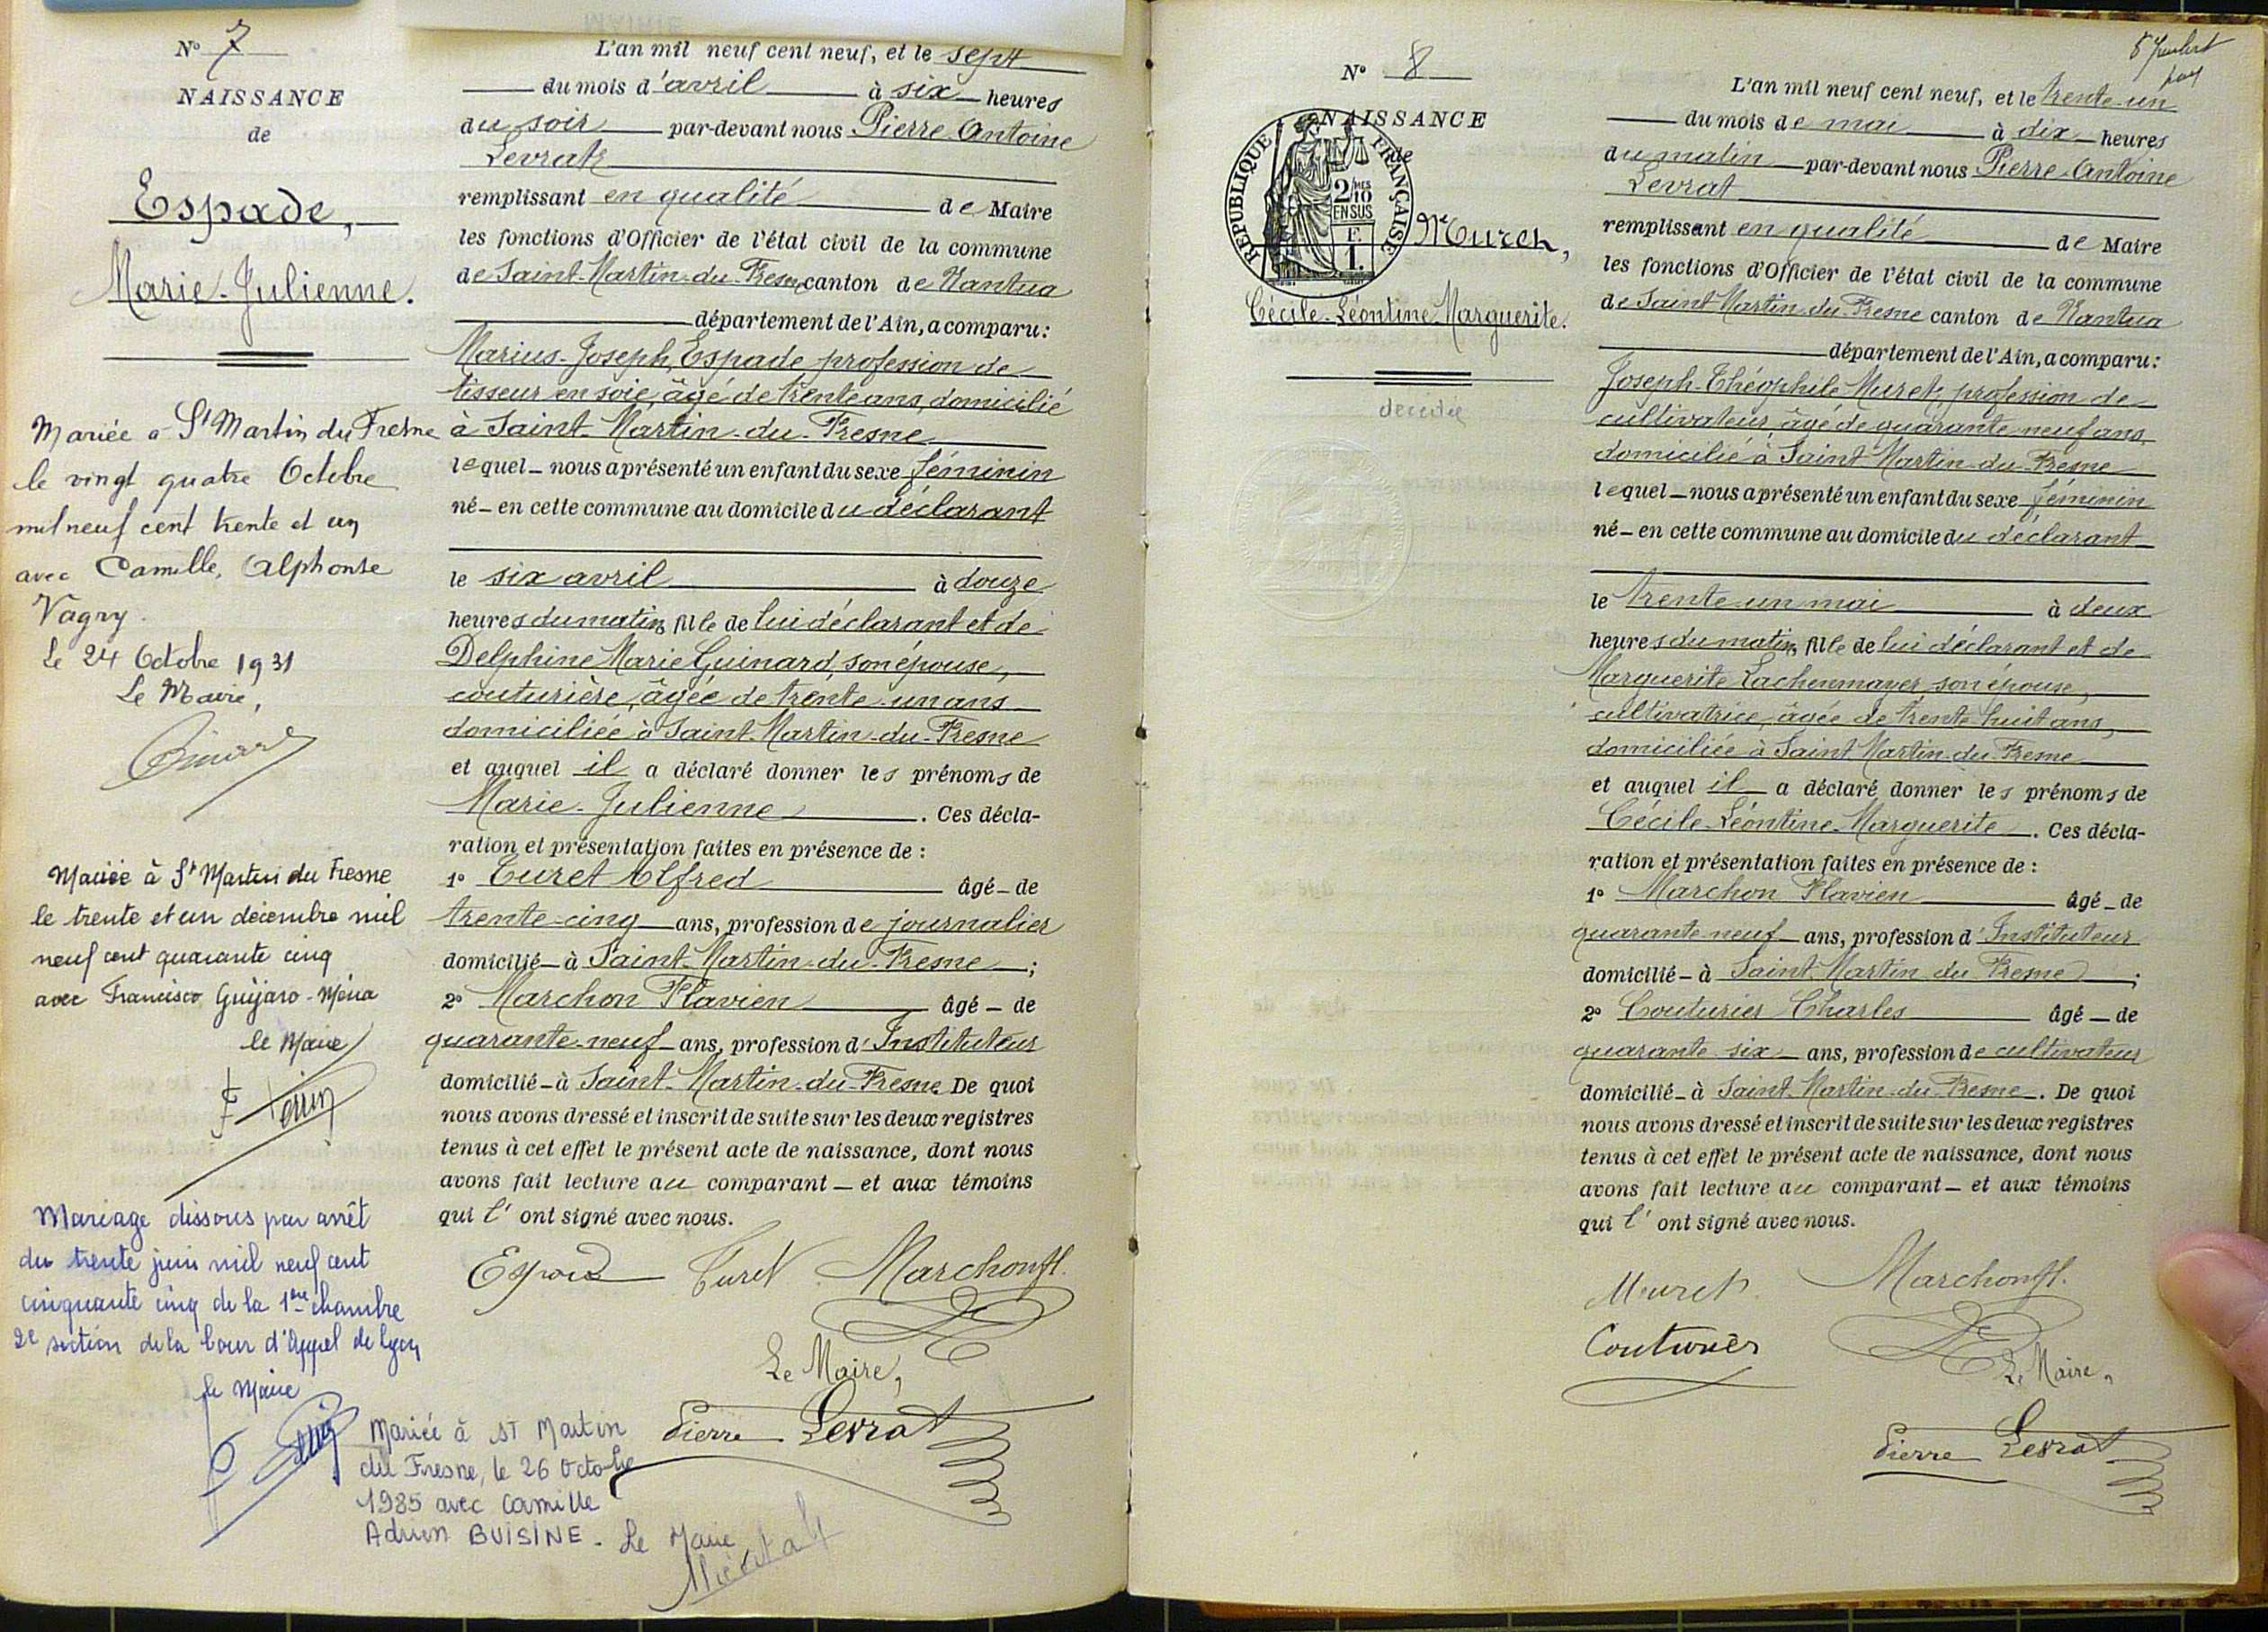 N° 7
NAISSANCE
de
Espade,
Marie-Julienne.
Mariée à St Martin du Fresne
le vingt quatre Octobre
mil neuf cent trente et un
avec Camille, Alphonse
Vagry.
Le 24 Octobre 1931
Le Maire,
Mariée à St Martin du Fresne
le trente et un décembre mil
neuf cent quarante cinq
avec Francisco Guijaro-
le Maire
Mariage dissous par arrêt
du trente juin mil neuf cent
cinquante cinq de la 1ère chambre
2e section de la Cour d'Appel de Lyon
le Maire
Mariée à ST Martin
du Fresne, le 26 Octobre
1985 avec Camille
Adrien BUISINE. Le Maire
L'an mil neuf cent neuf, et le sept
du mois d'avril à six heures
du soir par-devant nous Pierre-Antoine
Levrat
remplissant en qualité de Maire
les fonctions d'Officier de l'état civil de la commune
de Saint-Martin-du-Fresne canton de Nantua
département de l'Ain, a comparu:
Marius-Joseph, Espade profession de
tisseur en soie, âgé de trente ans, domicilié
à Saint-Martin-du-Fresne
lequel – nous a présenté un enfant du sexe féminin
né – en cette commune au domicile du déclarant
le six avril à douze
heures du matin, fille de lui déclarant et de
Delphine Marie Guinard, son épouse,
couturière, âgée de trente-un ans
domiciliée à Saint-Martin-du-Fresne
et auquel il a déclaré donner les prénoms de
Marie-Julienne. Ces décla-
ration et présentation faites en présence de :
1° Curet Alfred âgé – de
trente-cinq ans, profession de journalier
domicilié – à Saint-Martin-du-Fresne ;
2° Marchon Flavien âgé – de
quarante-neuf ans, profession d'Instituteur
domicilié – à Saint-Martin-du-Fresne. De quoi
nous avons dressé et inscrit de suite sur les deux registres
tenus à cet effet le présent acte de naissance, dont nous
avons fait lecture au comparant – et aux témoins
qui l'ont signé avec nous.
Espade Curet Marchon Fl.
Le Maire,
Pierre Levrat
N° 8
NAISSANCE
de
REPUBLIQUE FRANÇAISE
2/10 MES
EN SUS
F.
1.
Muret,
Cécile-Léontine-Marguerite.
décédée
L'an mil neuf cent neuf, et le trente-un
du mois de mai à dix heures
du matin par-devant nous Pierre-Antoine
Levrat
remplissant en qualité de Maire
les fonctions d'Officier de l'état civil de la commune
de Saint-Martin-du-Fresne canton de Nantua
département de l'Ain, a comparu:
Joseph-Théophile Muret, profession de
cultivateur, âgé de quarante-neuf ans,
domicilié à Saint-Martin-du-Fresne
lequel – nous a présenté un enfant du sexe féminin
né – en cette commune au domicile du déclarant
le trente-un mai à deux
heures du matin, fille de lui déclarant et de
Marguerite Lachenmayer, son épouse,
cultivatrice, âgée de trente-huit ans,
domiciliée à Saint-Martin-du-Fresne
et auquel il a déclaré donner les prénoms de
Cécile-Léontine-Marguerite. Ces décla-
ration et présentation faites en présence de :
1° Marchon Flavien âgé – de
quarante-neuf ans, profession d'Instituteur
domicilié – à Saint-Martin du Fresne ;
2° Couturier Charles âgé – de
quarante-six ans, profession de cultivateur
domicilié – à Saint-Martin-du-Fresne. De quoi
nous avons dressé et inscrit de suite sur les deux registres
tenus à cet effet le présent acte de naissance, dont nous
avons fait lecture au comparant – et aux témoins
qui l'ont signé avec nous.
Muret Marchon Fl.
Couturier
Le Maire,
Pierre Levrat